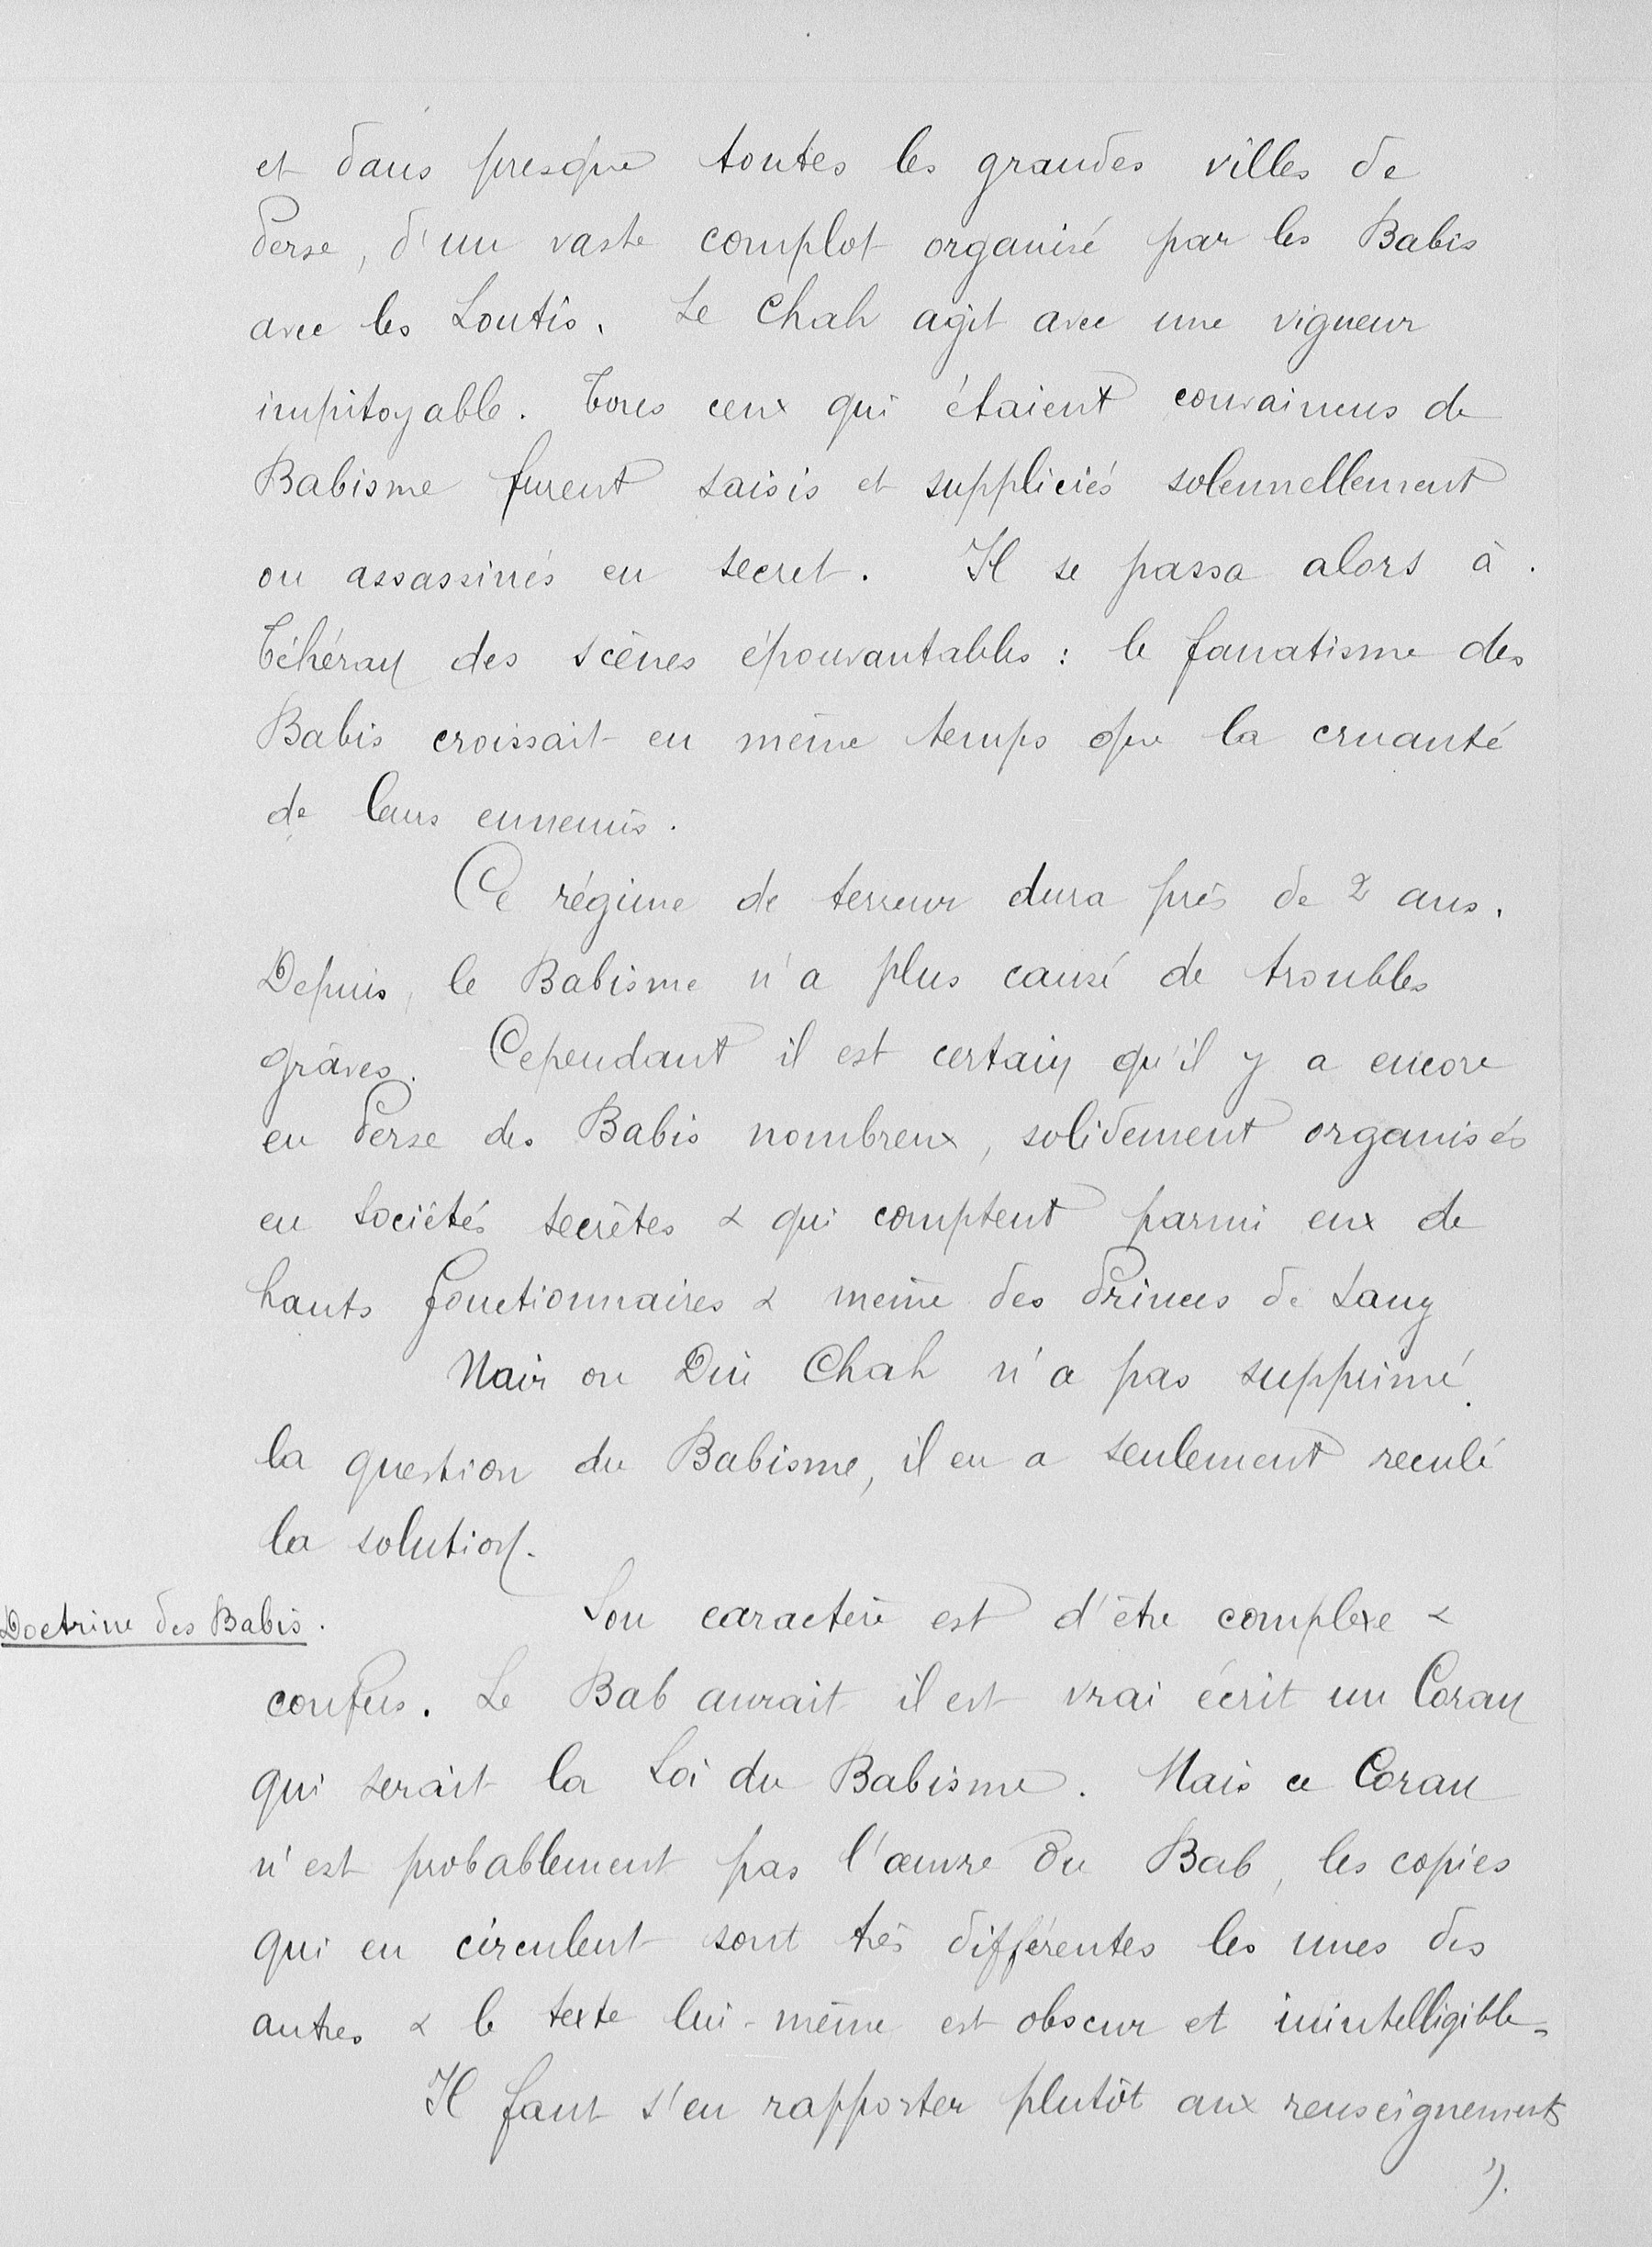 et dans presque toutes les grandes villes de
Perse, d'un vaste complot organisé par les Babis
avec les Loutis. Le Chah agit avec une vigueur
impitoyable. Tous ceux qui étaient convaincus de
Babisme furent saisis et suppliciés solennellement
ou assassinés en secret. Il se passa alors à
Téhéran des scènes épouvantables : le fanatisme des
Babis croissait en même temps que la cruauté
de leurs ennemis.
Ce régime de terreur dura près de 2 ans.
Depuis, le Babisme n'a plus causé de troubles
graves. Cependant il est certain qu'il y a encore
en Perse des Babis nombreux, solidement organisés
en Sociétés secrètes & qui comptent parmi eux de
hauts fonctionnaires & même des Princes de Sang
Nasr ou Din Chah n'a pas supprimé
la question du Babisme, il en a seulement reculé
la solution.
Doctrine des Babis. Son caractère est d'être complexe &
confus. Le Bab aurait il est vrai écrit un Coran
qui serait la Loi du Babisme. Mais ce Coran
n'est probablement pas l'œuvre du Bab, les copies
qui en circulent sont très différentes les unes des
autres & le texte lui-même est obscur et inintelligible.
Il faut s'en rapporter plutôt aux renseignements